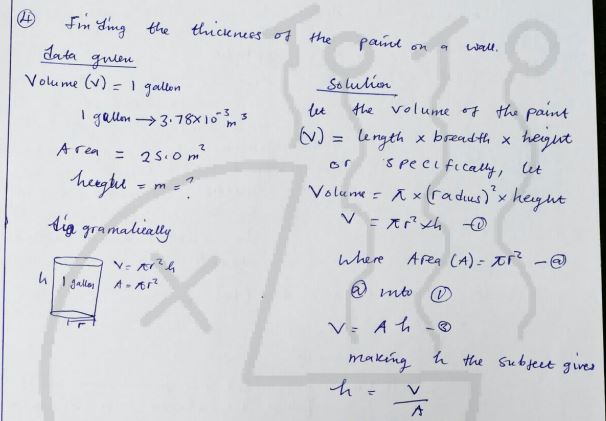 ④ Finding the thickness of the paint on a wall.
data given
Volume (V) = 1 gallon
1 gallon → 3.78×10⁻³ m³
Area = 25.0 m²
height = m = ?
diagramatically
h 1 gallon r
V = πr²h
A = πr²
Solution
let the volume of the paint
(V) = length × breadth × height
or specifically, let
Volume = π × (radius)² × height
V = πr²×h —①
where Area (A) = πr² —②
② into ①
V = A h —③
making h the subject gives
h = V/A